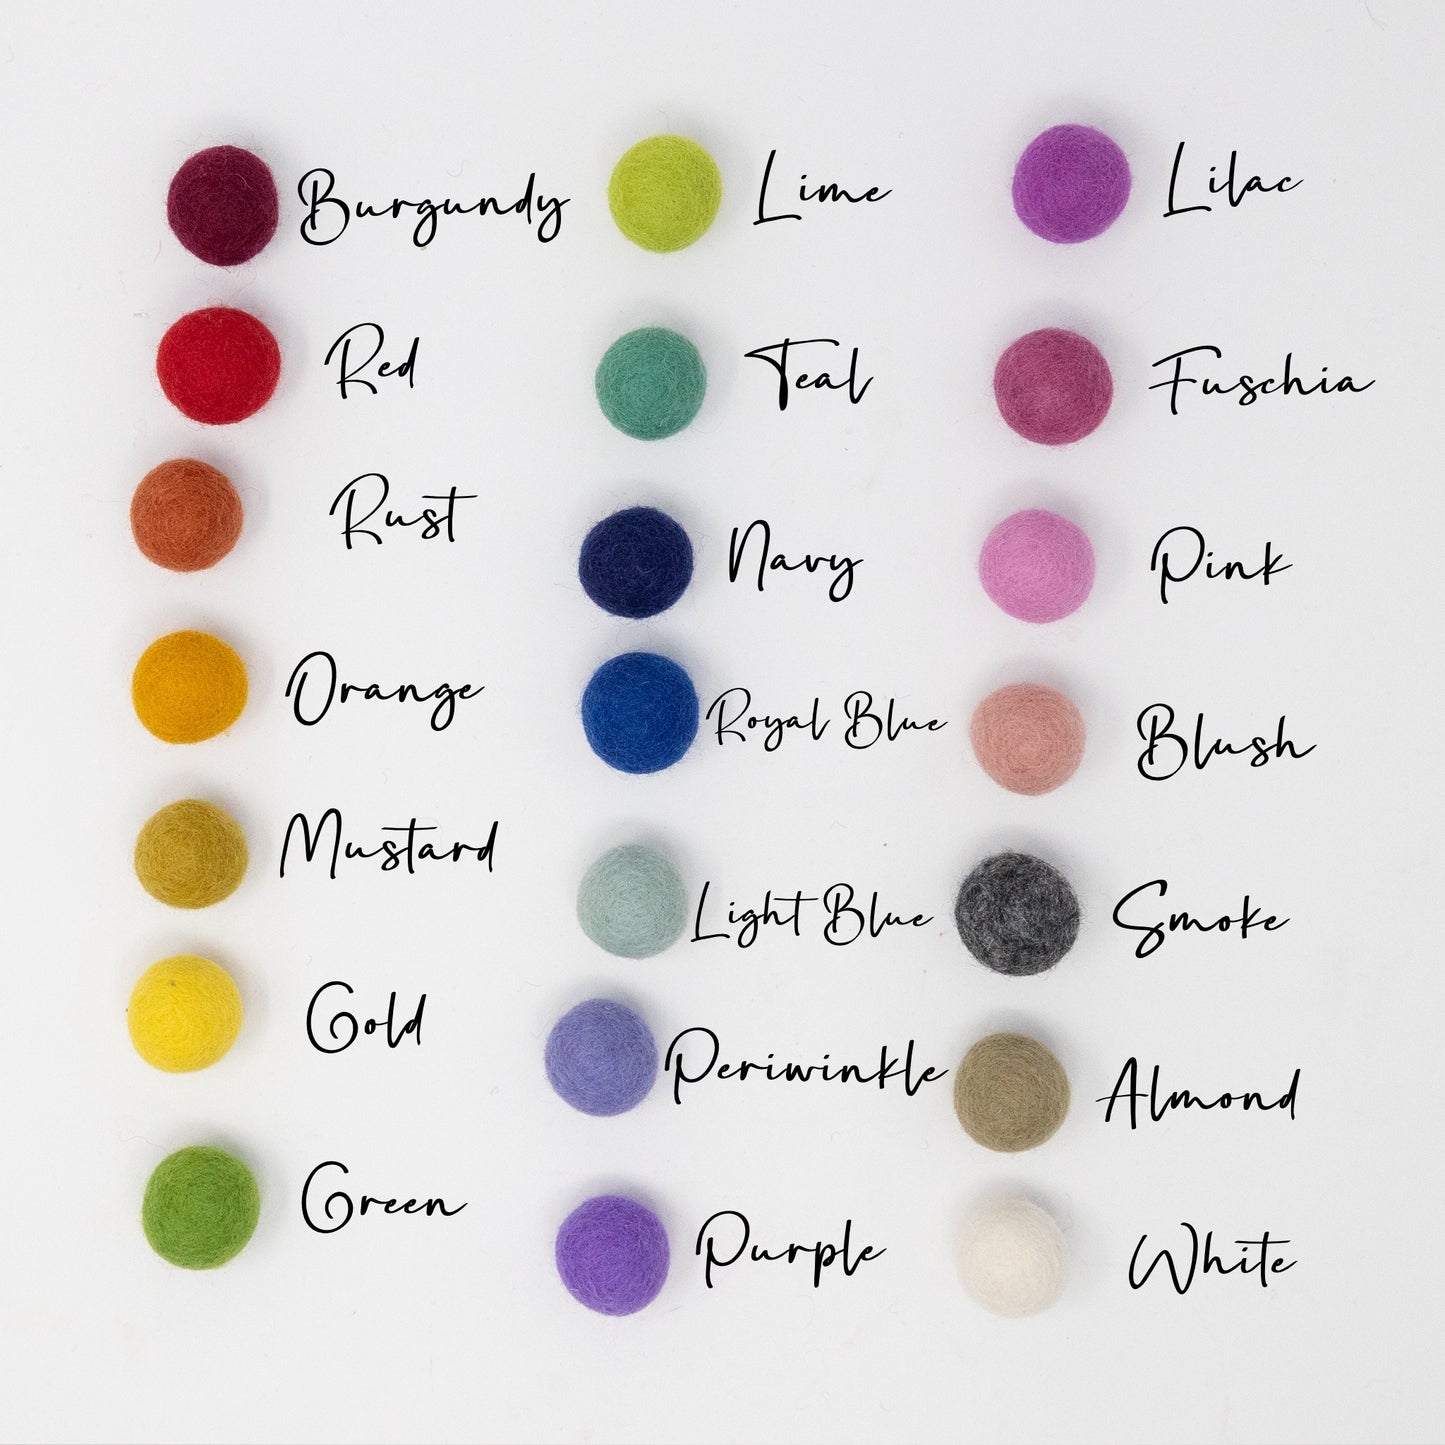 Burgundy
Red
Rust
Orange
Mustard
Gold
Green
Lime
Teal
Navy
Royal Blue
Light Blue
Periwinkle
Purple
Lilac
Fuschia
Pink
Blush
Smoke
Almond
White